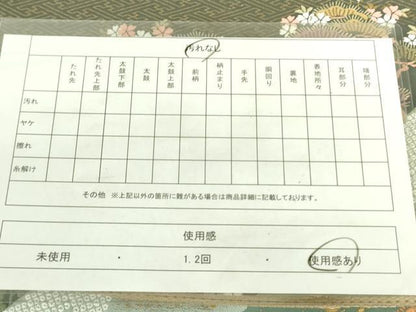 汚れなし
たれ先 たれ先上部 太鼓下部 太鼓 太鼓上部 前柄 柄止まり 手先 胴回り 裏地 各地所々 耳部分 端部分
汚れ
ヤケ
擦れ
糸解け
その他 ※上記以外の箇所に難がある場合は商品詳細に記載しております。
使用感
未使用 ・ 1.2回 ・ 使用感あり